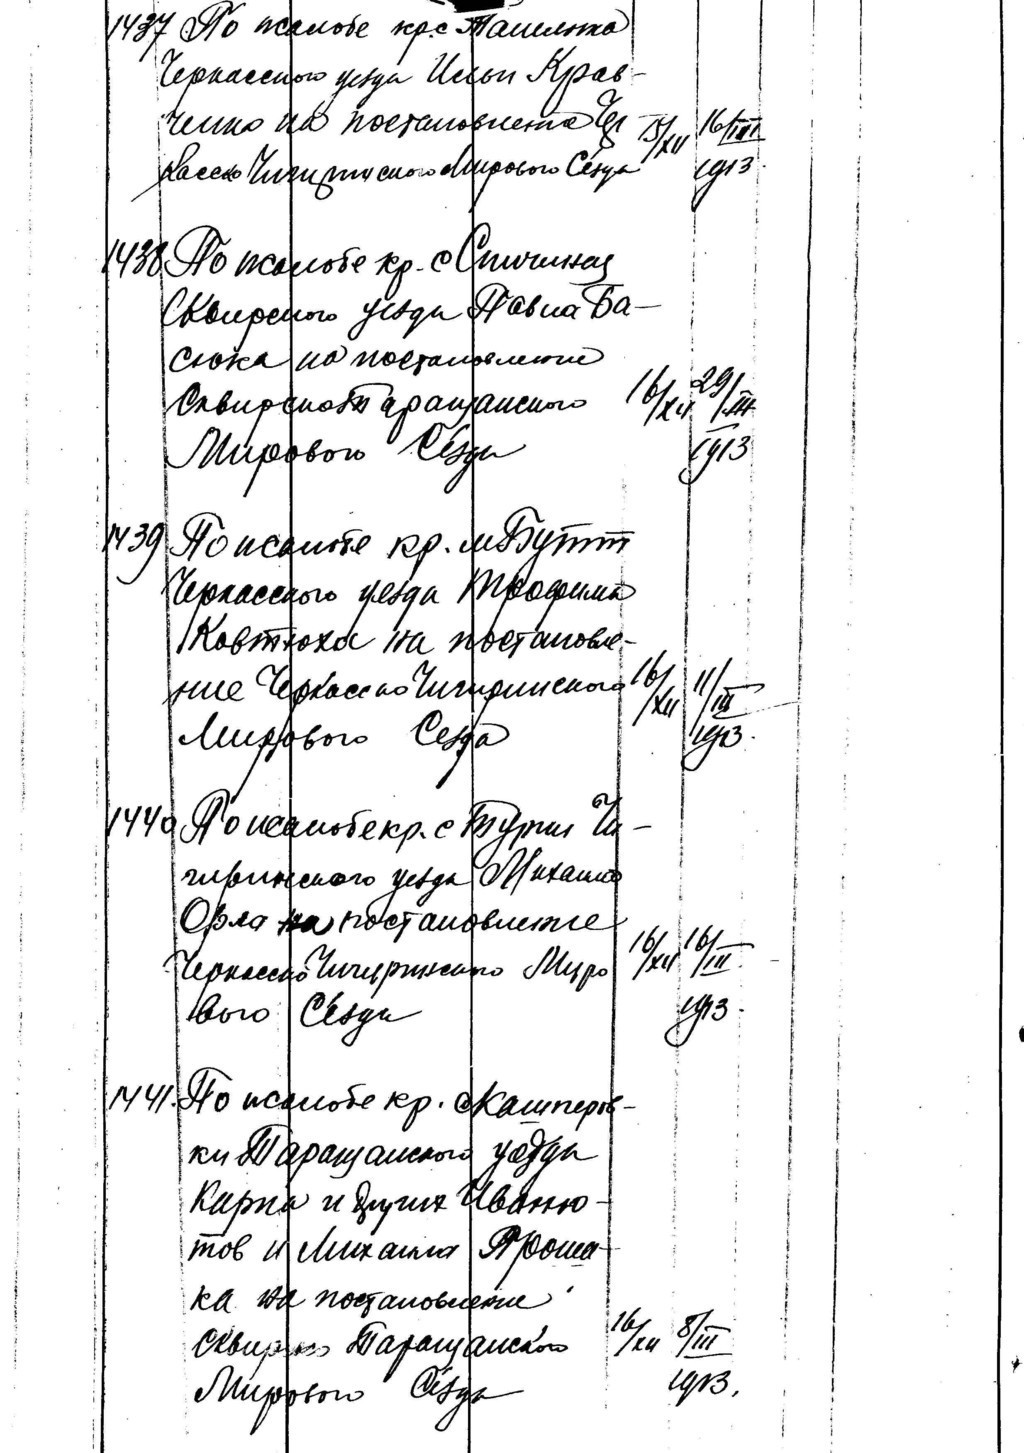 1437 По жалобе кр. с Ташлыка
Черкасского уезда Ильи Крав-
ченко на постановление Чер
касско Чигиринского Мирового Сезда 15/XII 16/III
1913.
1438 По жалобе кр. с Спичинец
Сквирского уезда Павла Ба-
сюка на постановление
Сквирско Таращанского 16/XII 29/III
Мирового Сезда 1913
1439 По жалобе кр. м
Черкасского уезда Трофима
Ковтюха на постановле-
ние Черкасско Чигиринского 16/XII 11/III
Мирового Сезда 1913.
1440 По жалобе кр. с Турии Чи-
гиринского уезда Михаила
Орла на постановление
Черкасско Чигиринского Миро 16/XII 16/III
вого Сезда 1913.
1441. По жалобе кр. с Кашперов-
ки Таращанского уезда
Карпа и других Иваню-
тов и Михаила Яроша-
ка на постановление
Сквирско Таращанского 16/XII 8/III
Мирового Сезда 1913.